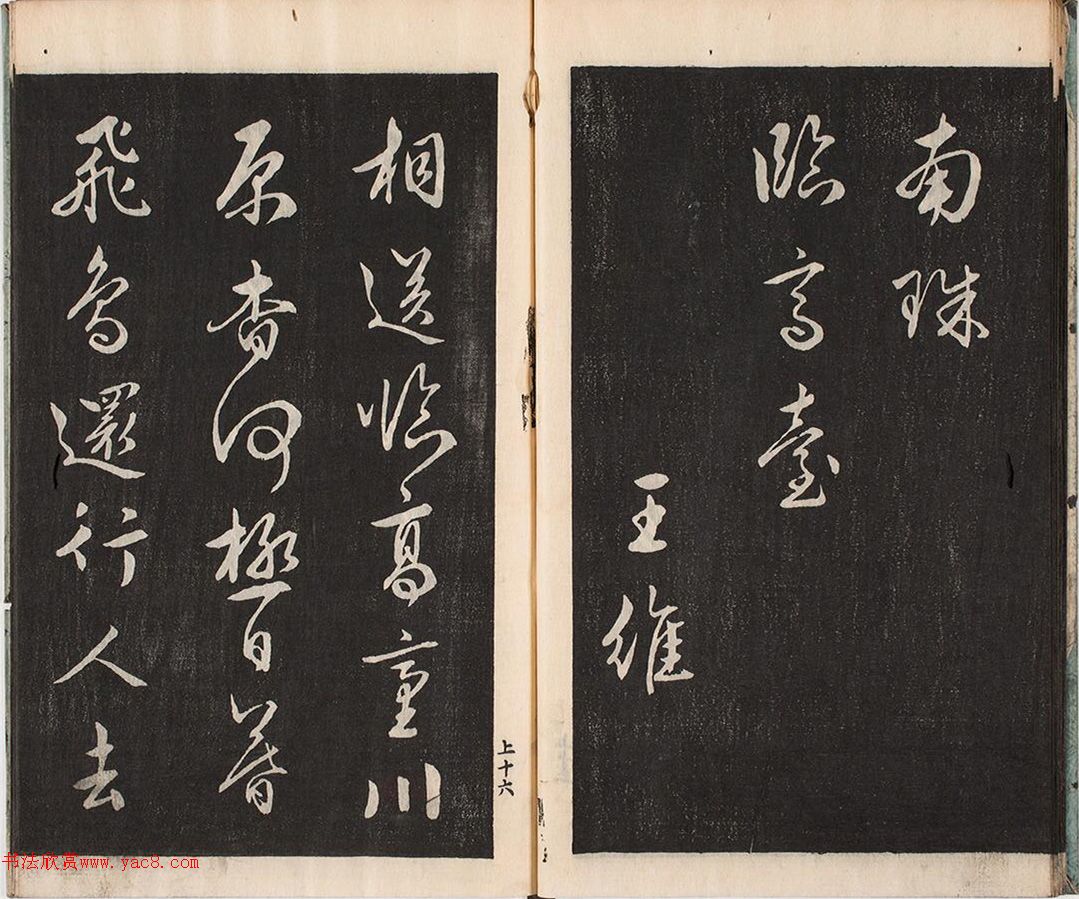 南珠
臨高臺
王維
相送臨高臺川
原杳何極日暮
飛鳥還行人去
上十六
书法欣赏www.yac8.com